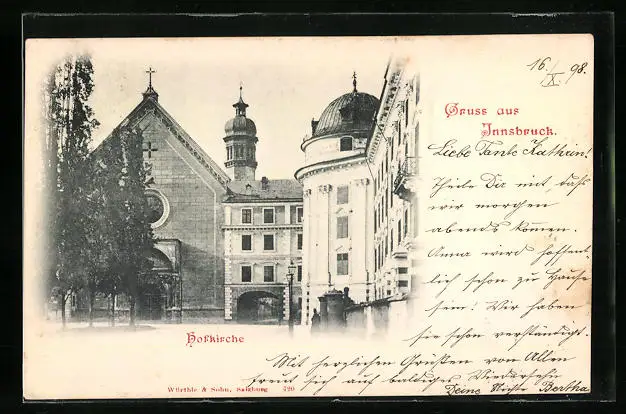 16./X. 98.
Gruss aus
Innsbruck.
Liebe Tante Kathrin!
Theile Dir mit daß
wir morgen
abends kommen.
Anna wird hoffent-
lich schon zu Hause
sein! Wir haben
sie schon verständigt.
Hofkirche
Mit herzlichen Grüßen von Allen
freut sich auf baldiges Wiedersehn
Deine Nichte Bertha
Würthle & Sohn, Salzburg 420